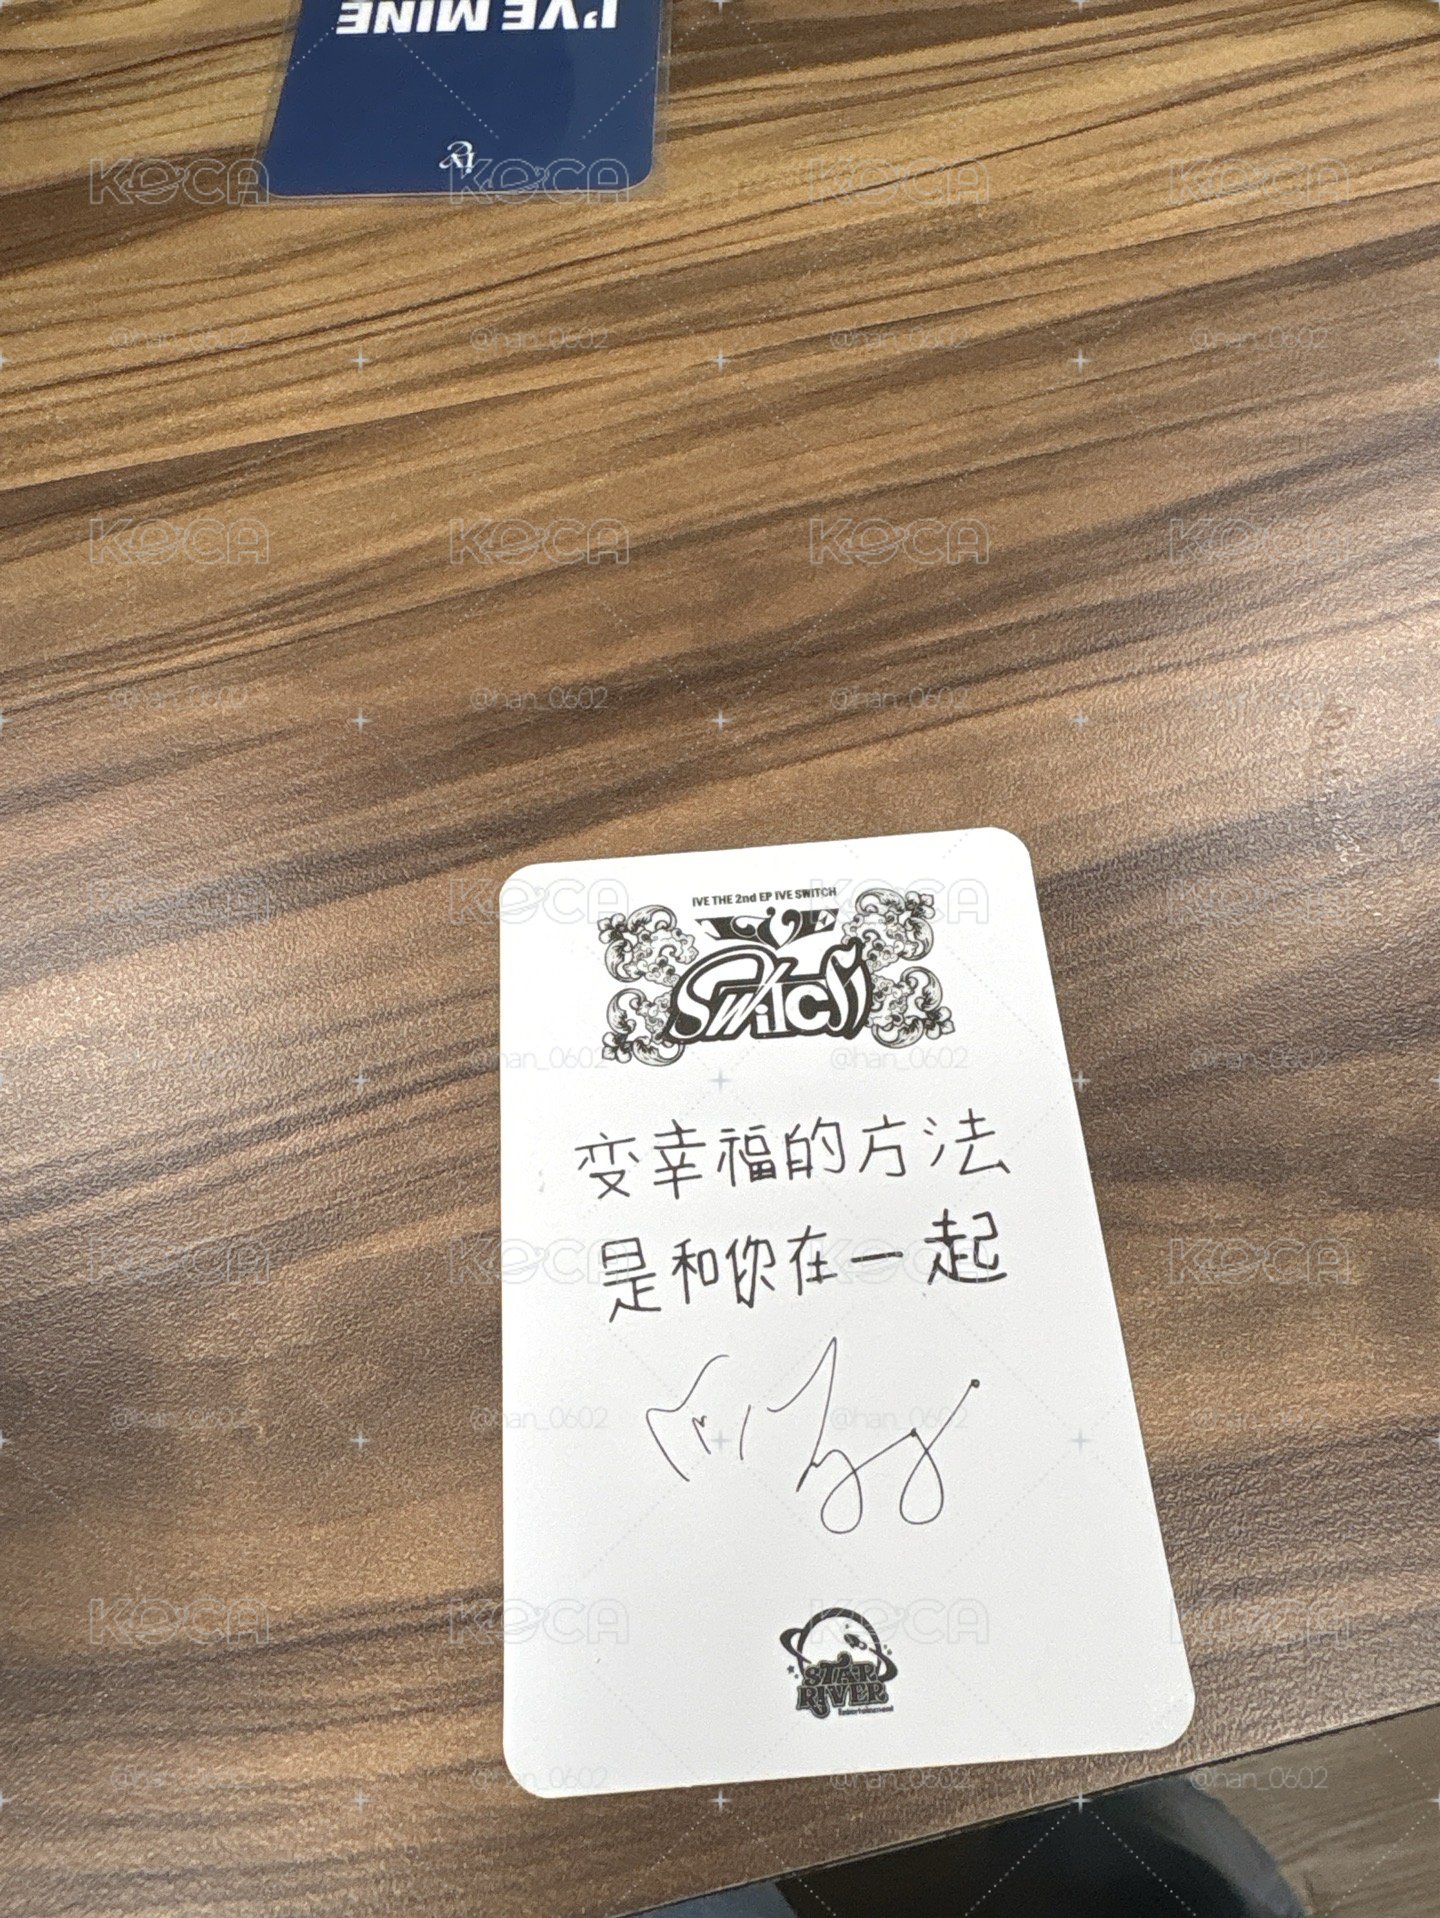 I'VE MINE
IVE
IVE THE 2nd EP IVE SWITCH
IVE
SWITCH
变幸福的方法
是和你在一起
STAR
RIVER
Entertainment
KOCA
@han_0602